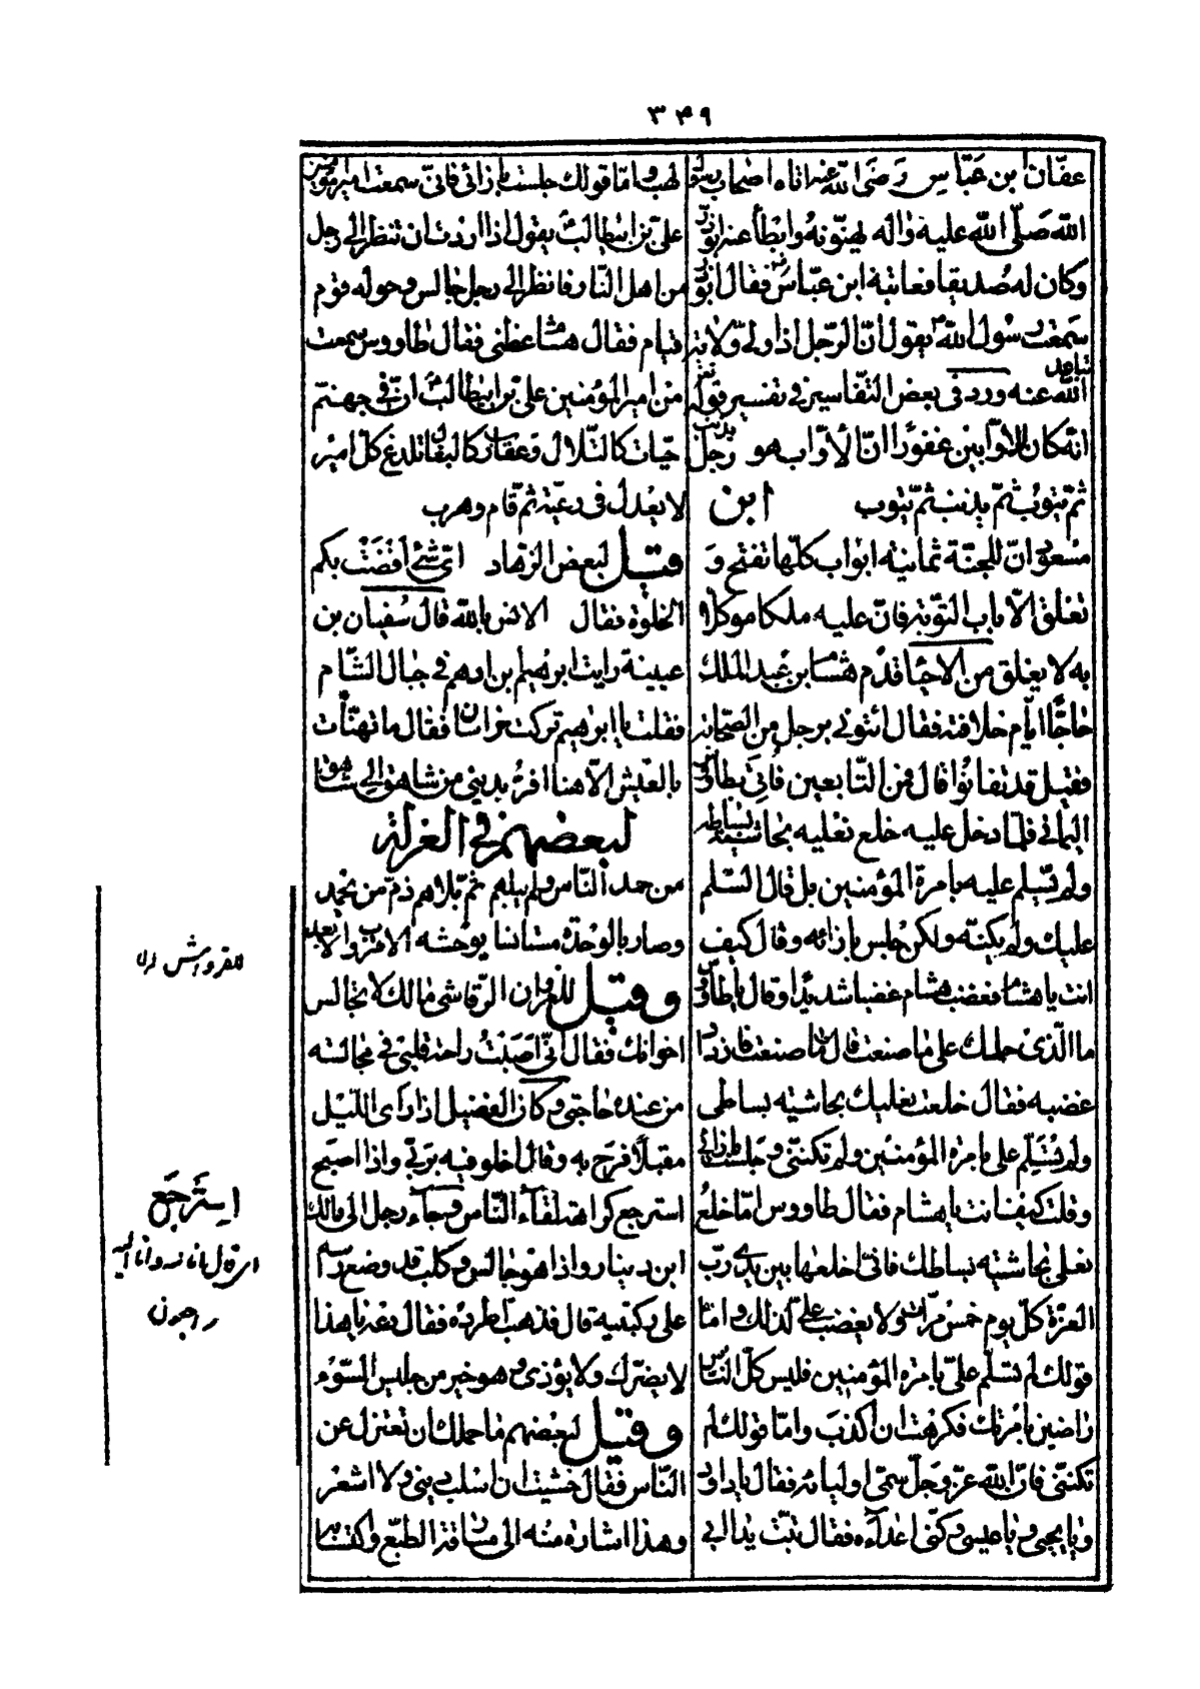 ۳۴۹
عفّان ابن عبّاس رَضَی اللّه عنه اتاه اصحاب رسول
اللّه صَلّی اللّه علیه واله لهنّونه وابطأ عنه ابوذر
وكان له صُدیقا فعاتبه ابن عبّاس فقال ابوذر
سَمِعت رسُول اللّه یقول انّ الرّجل اذا ولّی ولایة تباعد
اللّه عنه ورد فی بعض التّفاسیر فی تفسیر قوله
انّه كان للاوّابین غفورًا انّ الأوّاب هو رجل یذنب
ثمّ یتوبُ ثمّ یذنب ثمّ یتوب ابن
مسعود انّ للجنّة ثمانیة ابواب كلّها تفتح وَ
تغلق الّا باب التّوبة فانّ علیه ملكا موكلًا
به لا یغلق من الاحیا قدم هشام بن عبد الملك
حاجًّا ایّام خلافته فقال ائتونی برجل من الصّحابة
فقیل قد تفانُوا قال فمن التّابعین فأتی بطاوس
الیمانی فلمّا دخل علیه خلع نعلیه بحاشیة بساطه
ولم یسلّم علیه بامرة المؤمنین بل قال السّلم
علیك ولم یكنّه ولكن جلس بازائه وقال كیف
انت یا هشام فغضب هشام غضبا شدیدًا وقال یا طاوس
ما الّذی حملك علی ما صنعت قال ما صنعت فازداد
غضبه فقال خلعت نعلیك بحاشیة بساطی
ولم تُسَلِّم علی بامرة المؤمنین ولم تكنّنی وجلست بازائی
وقلت كیف انت یا هشام فقال طاووس امّا خلعُ
نعلی بحاشیة بساطك فانّی اخلعها بین یدی ربّ
العزّة كلّ یوم خمس مرّات ولا یغضب علیّ لذلك وامّا
قولك لم تسلّم علیّ بامرة المؤمنین فلیس كلّ النّاس
راضین بامرتك فكرهت ان اكذب وامّا قولك لم
تكنّنی فانّ اللّه عزّ وجلّ سمّی اولیائه فقال یا داود
ویا یحیی ویا عیسی وكنّی اعدآءه فقال تبّت یدا ابی
لهب وامّا قولك جلست بازائی فانّی سمعت امیر المؤمنین
علیّ بن ابیطالب یقول اذا اردت ان تنظر الی رجل
من اهل النّار فانظر الی رجل جالس وحوله قوم
قیام فقال هشام عظنی فقال طاووس سمعت
من امیر المؤمنین علی بن ابیطالب انّ فی جهنّم
حیات كالتّلال وعقارب كالبغال تلدغ كلّ امیر
لا یعدل فی رعیّته ثم قام وهرب
وقیل لبعض الزهاد ایّ شئ افضَتْ بكم
الخلوة فقال الانس باللّه قال سُفیان بن
عیینة رایت ابرهیم بن ادهم فی جبال الشّام
فقلت یا ابرهیم تركت خراسان فقال ما تهنّأت
بالعیش الّا هنا افرّ بدینی من شاهق الی شاهق
لبعضهم فی العزلة
من حمد النّاس ولم یبلهم ثمّ بلاهم ذمّ من یحمد
وصار بالوحدة مستانسا یوحشه الاقرب والابعد
وقیل للغزوان الرّقاشی مالك لا تجالس
اخوانك فقال انّی اَصَبْتُ راحة قلبی فی مجالسة
من عنده حاجتی وكان الفضیل اذا رای اللیل
مقبلًا فرح به وقال اخلو فیه بربّی واذا اصبح
استرجع كراهة لقآء النّاس وجآء رجل الی مالك
ابن دینار واذا هو جالس وكلب قد وضع راسه
علی ركبتیه قال فذهبت اطرده فقال دعه یا هذا
لا یضرّك ولا یؤذی وهو خیر من جلیس السّوء
وقیل لبعضهم ما حملك ان تعتزل عن
النّاس فقال خشیت ان اسلب دینی ولا اشعر
وهذا اشارة منه الی مسارقة الطبع واكتسابه
اِستَرجَعَ
ای قال انا لله وانا الیه
راجعون